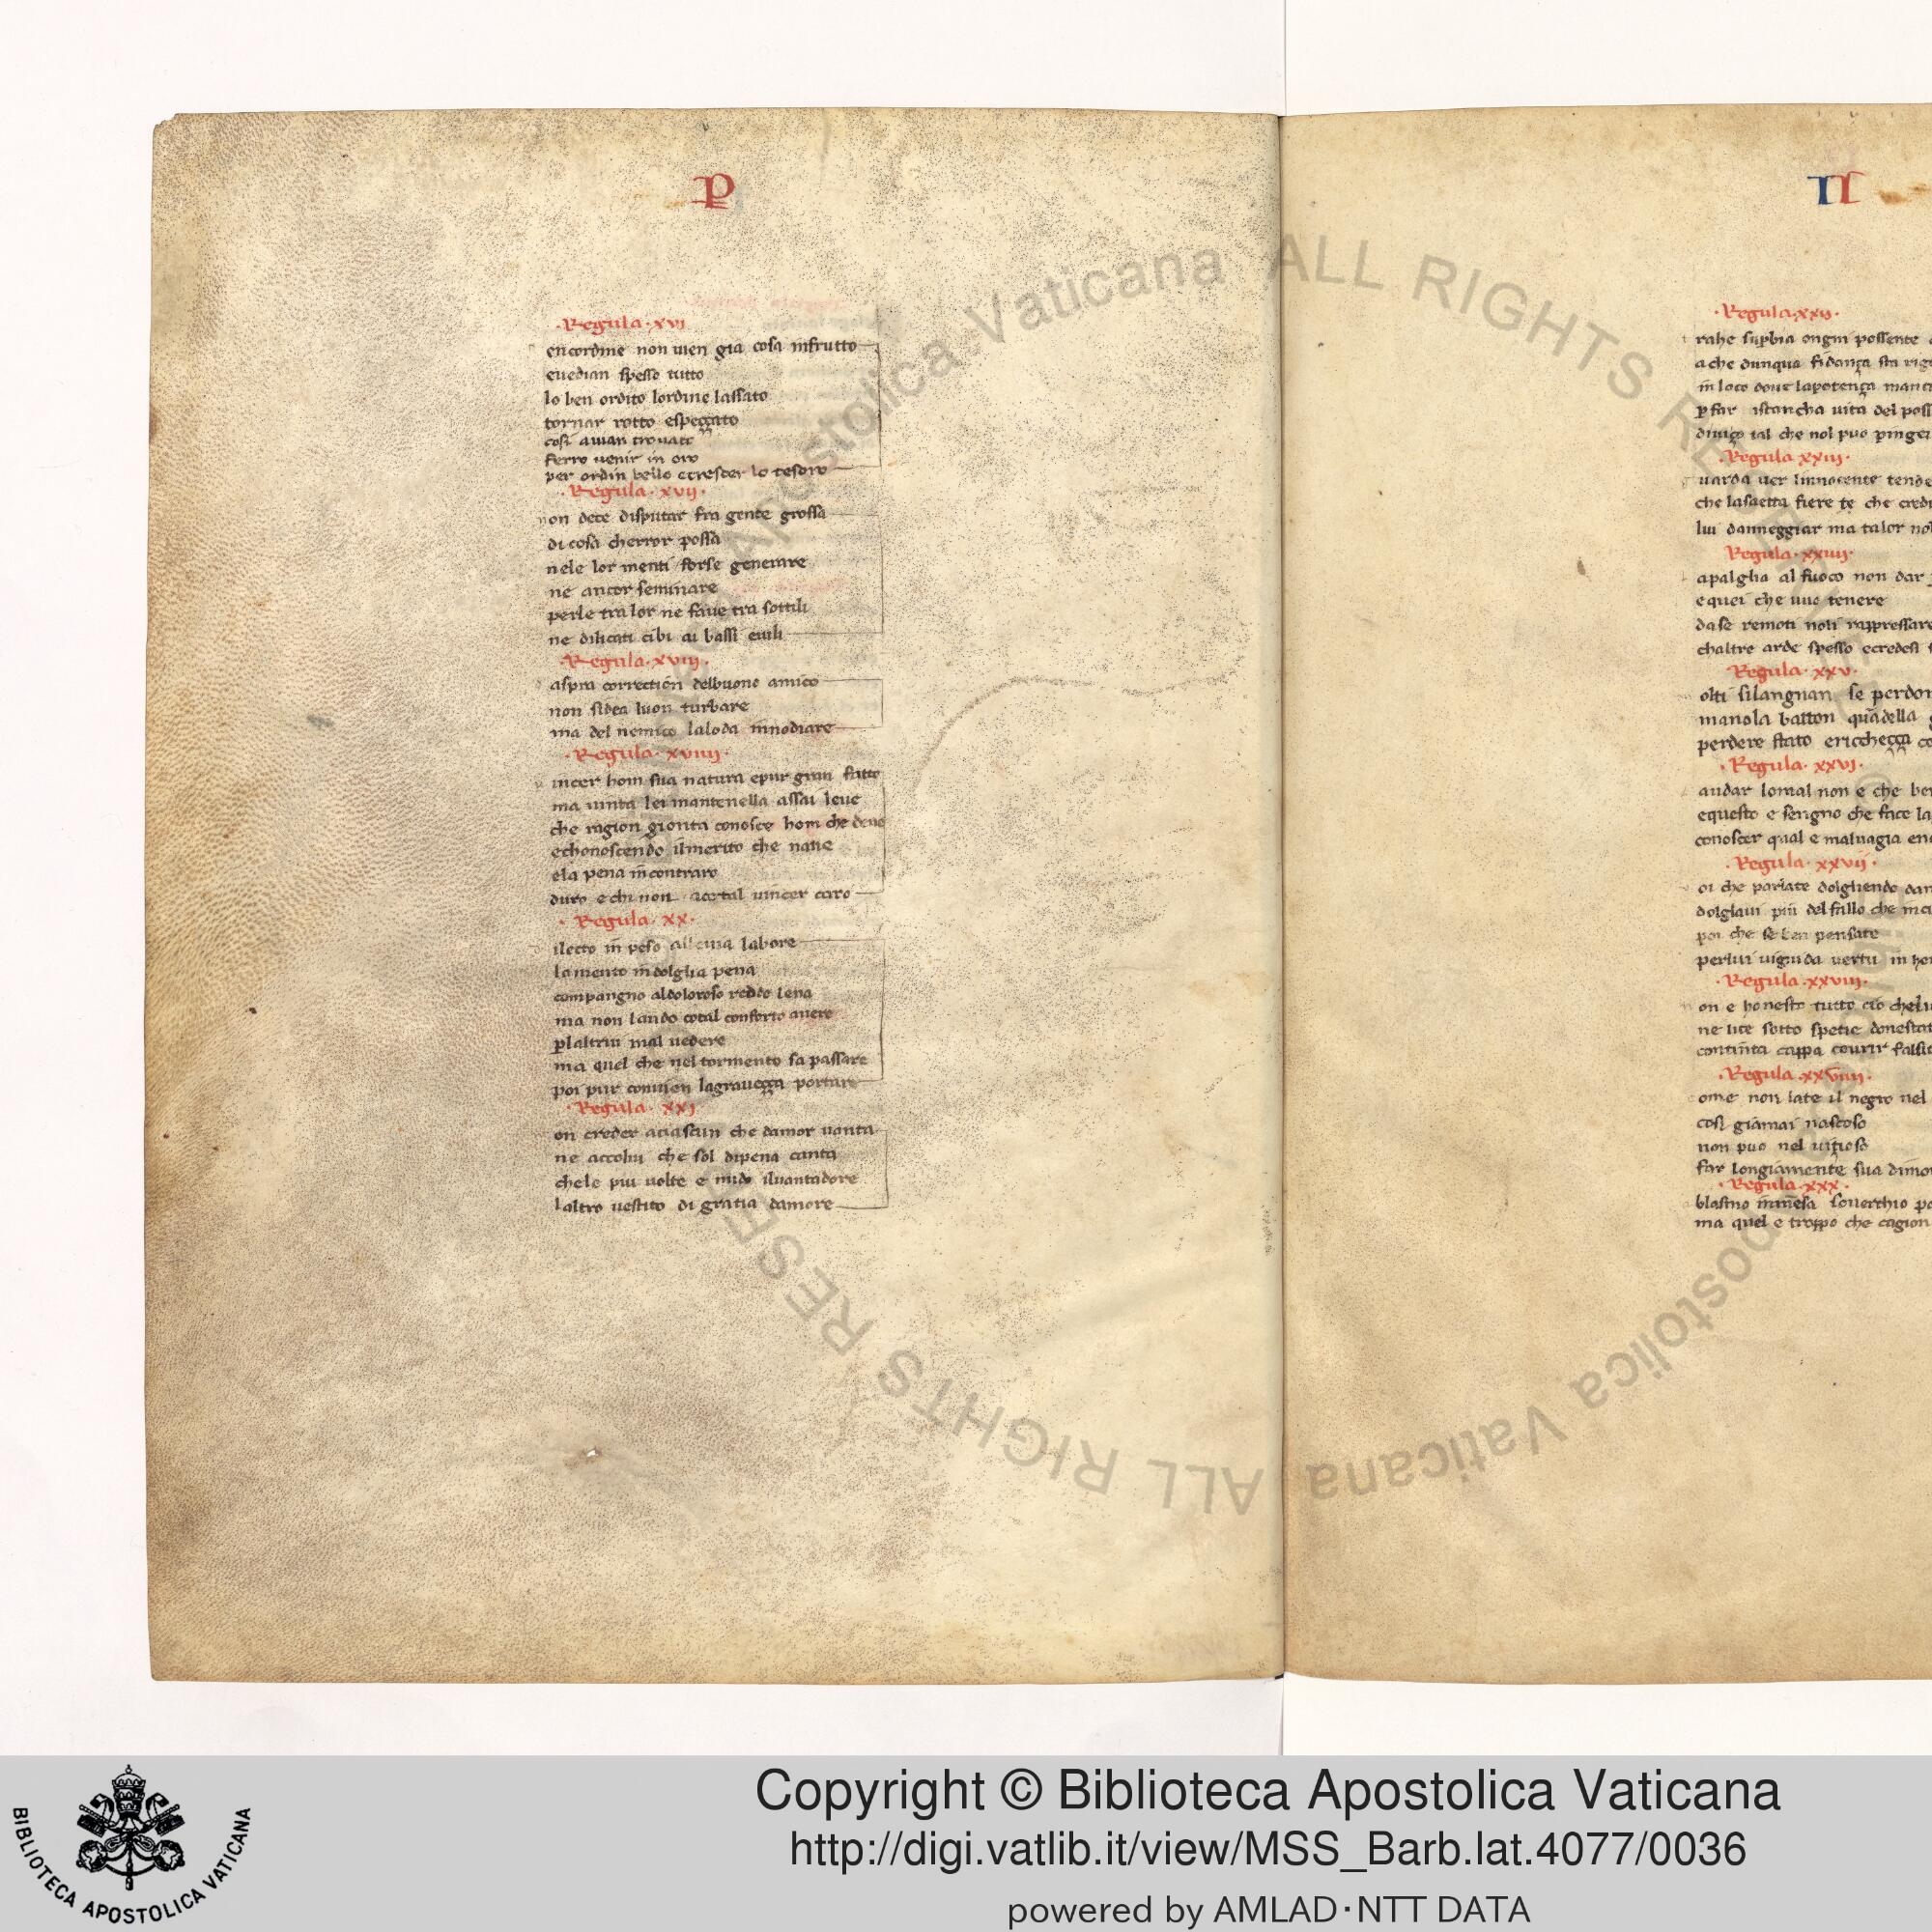 P
·Regula·xvi
encordine non uien gia cosa infrutto
euedian spesso tutto
lo ben ordito lordine lassato
tornar rotto espeççato
cosi auian trouato
ferro uenir in oro
per ordin bello ecrescer lo tesoro
·Regula·xvii·
non dece disputar fra gente grossa
di cosa cherror possa
nele lor menti forse generare
ne ancor seminare
perle tra lor ne faue tra sottili
ne dilicati cibi ai bassi euili
·Regula·xviii·
aspra correction delbuono amico
non sidea luon turbare
ma del nemico laloda innodiare
·Regula·xviiii·
incer hom sua natura epur gran fatto
ma uinta lei mantenella assai leue
che ragion gionta conosce hom che deue
echonoscendo ilmerito che naue
ela pena incontraro
duro echi non acertal uincer caro
·Regula·xx·
ilecto in peso labore
lamento indolglia pena
compangno aldoloroso reddo lena
ma non laudo cotal conforto auere
plaltrui mal uedere
ma quel che nel tormento sa passare
poi pur conuien lagraueçça portare
·Regula·xxi
on creder aciascun che damor uanta
ne accolui che sol dipena canta
chele piu uolte e nudo iluantadore
laltro uestito di gratia damore
II
·Regula·xxii·
rahe supbia ongni possente
ache dunqua fidança sta
in loco doue lapotença
p far istancha uita del
diuiço tal che nol puo
·Regula xxiii·
uarda uer linnocente
che lasaetta fiere te che
lui danneggiar ma talor
·Regula·xxiiii·
apalglia al fuoco non dar
equei che uuo tenere
dase remoti noli
chaltre arde spesso ecredesi
·Regula xxv·
olti silangnan se
manola batton quadella
perdere stato ericcheçça
·Regula·xxvi·
audar lomal non e che
equesto e sengno che face
conoscer qual e maluagia
·Regula·xxvii·
oi che pariate dolgliendo
dolglaui piu del fallo che
poi che se ben pensate
perlui uiguida uertu in
·Regula·xxviii·
on e honesto tutto cio
ne lice sotto spetie
continta cappa courir
·Regula·xxviiii·
ome non late il negro nel
cosi giamai nascoso
non puo nel uitioso
far longiamente sua
·Regula·xxx·
blasmo souerchio
ma quel e troppo che
Apostolica Vaticana ALL RIGHTS RE
postolica Vaticana ALL RIGHTS RESE
BIBLIOTECA APOSTOLICA VATICANA
Copyright © Biblioteca Apostolica Vaticana
http://digi.vatlib.it/view/MSS_Barb.lat.4077/0036
powered by AMLAD·NTT DATA